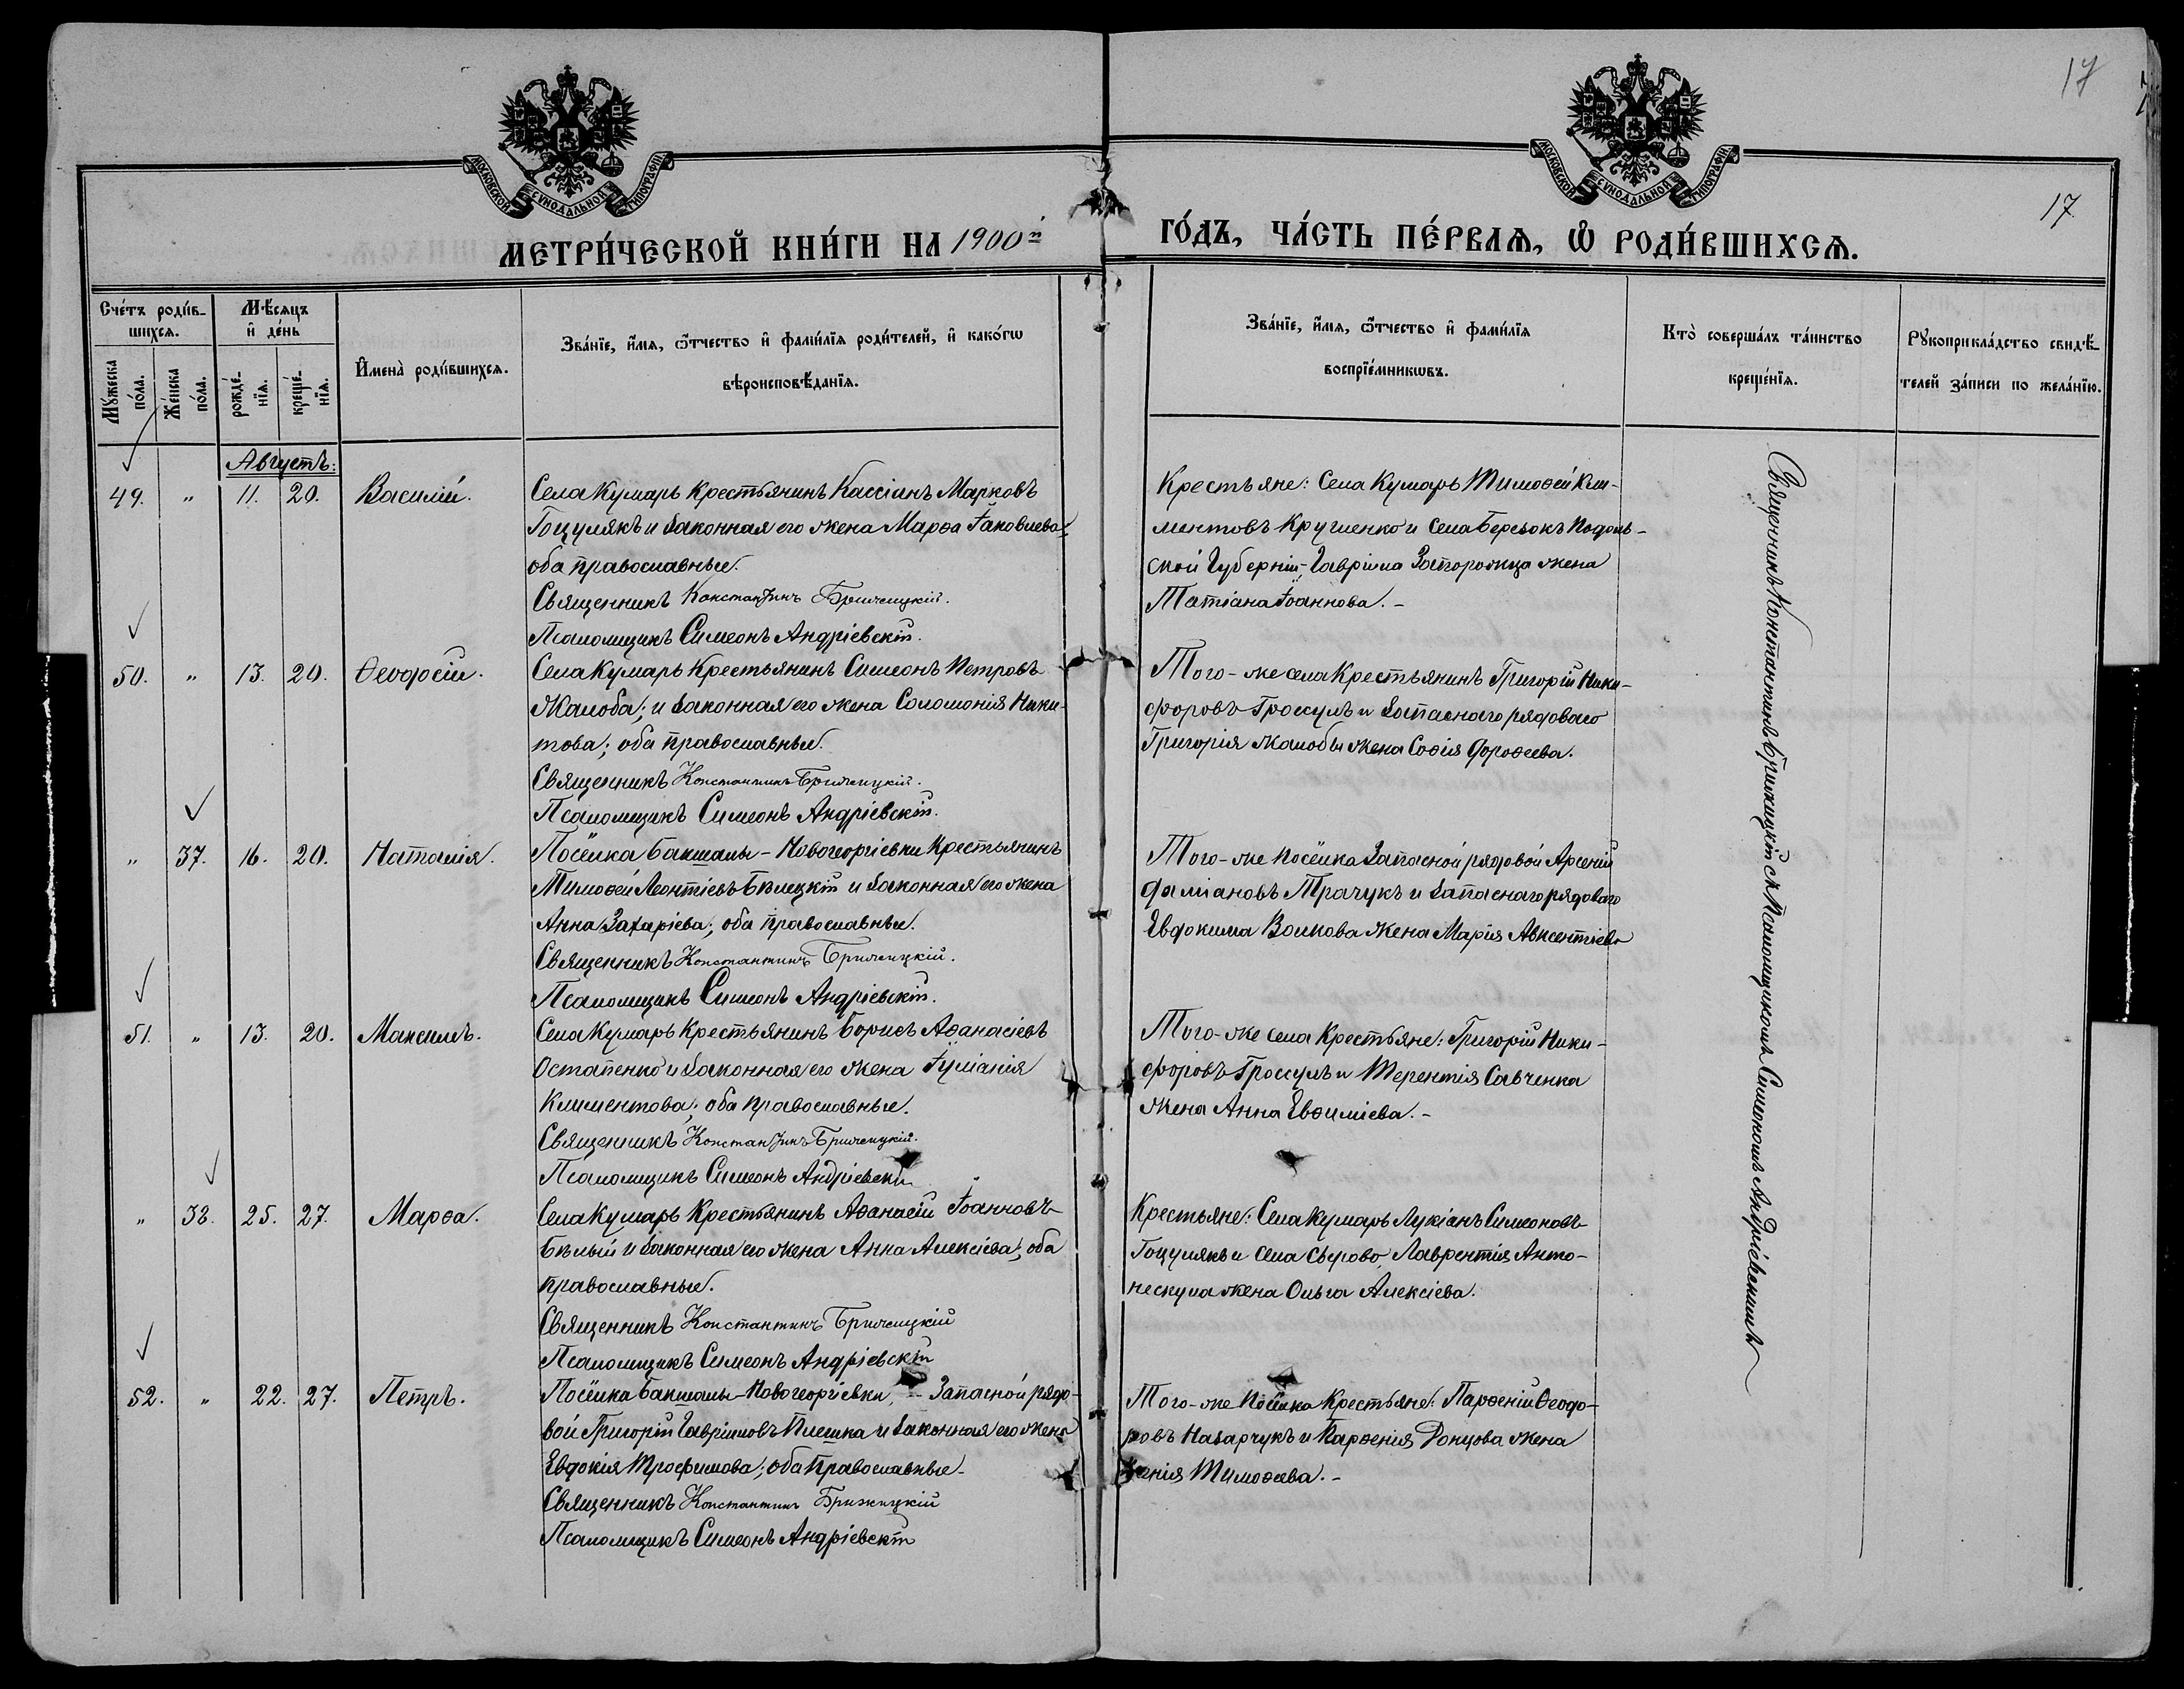 17
17
МОСКОВСКОЙ СѴНОДАЛЬНОЙ ТИПОГРАФІИ
МОСКОВСКОЙ СѴНОДАЛЬНОЙ ТИПОГРАФІИ
МЕТРИ́ЧЕСКОЙ КНИ́ГИ НА 1900й ГО́ДЪ, ЧА́СТЬ ПЕ́РВАѦ, Ѡ҆ РОДИ́ВШИХСѦ.
Сче́тъ роди́в-
шихсѧ.
Мꙋ́жеска по́ла.
Же́нска по́ла.
Мѣ́сѧцъ
и҆ де́нь
рожде́-
нїѧ.
креще́-
нїѧ.
И҆мена̀ роди́вшихсѧ.
Зва́нїе, и҆́мѧ, ѻ҆́тчество и҆ фами́лїѧ роди́телей, и҆ како́гѡ
вѣроисповѣ́данїѧ.
Зва́нїе, и҆́мѧ, ѻ҆́тчество и҆ фами́лїѧ
воспрїе́мникѡвъ.
Кто̀ соверша́лъ та́инство
креще́нїѧ.
Рꙋкоприкла́дство свидѣ́-
телей за́писи по жела́нїю.
Августъ:
49. " 11. 20. Василій.
Села Кумарь Крестьянинъ Кассіанъ Марковъ
Гоцулякъ и законная его жена Марѳа Іаковлева;
оба православные.
Священникъ Константинъ Брижицкій.
Псаломщикъ Симеонъ Андріевскій.
Крестьяне: Села Кумарь Тимоѳей Кли-
ментовъ Кругленко и села Березокъ Подоль-
ской Губерніи, Гавріила Запорожца жена
Татіана Іоаннова. -
50. " 13. 20. Ѳеодосій.
Села Кумарь Крестьянинъ Симеонъ Петровъ
Жалоба; и законная его жена Соломонія Ники-
това; оба православные.
Священникъ Константинъ Брижицкій.
Псаломщикъ Симеонъ Андріевскій.
Того-же села Крестьянинъ Григорій Ники-
форовъ Гроссулъ и запаснаго рядового
Григорія Жалобы жена Софія Дороѳеева.
" 37. 16. 20. Наталія.
Посёлка Бакшалы-Новогеоргіевки Крестьянинъ
Тимоѳей Леонтіевъ Бѣлецкій и законная его жена
Анна Захаріева; оба православные.
Священникъ Константинъ Брижицкій.
Псаломщикъ Симеонъ Андріевскій.
Того-же посёлка Запасной рядовой Арсеній
Даміановъ Трачукъ и запаснаго рядового
Евдокима Волкова жена Марія Авксентіева
51. " 13. 20. Максимъ.
Села Кумарь Крестьянинъ Борисъ Аѳанасіевъ
Остапенко и законная его жена Іуліанія
Климентова; оба православные.
Священникъ Константинъ Брижицкій.
Псаломщикъ Симеонъ Андріевскій
Того-же села Крестьяне: Григорій Ники-
форовъ Гроссулъ и Терентія Савченка
жена Анна Евѳиміева. -
" 38. 25. 27. Марѳа.
Села Кумарь Крестьянинъ Аѳанасій Іоанновъ
Бѣлый и законная его жена Анна Алексіева; оба
православные.
Священникъ Константинъ Брижицкій
Псаломщикъ Симеонъ Андріевскій
Крестьяне: Села Кумарь Лукіанъ Симеоновъ
Гоцулякъ и села Сырово, Лаврентія Анто-
нескула жена Ольга Алексіева.
52. " 22. 27. Петръ.
Посёлка Бакшалы-Новогеоргіевки, - Запасной рядо-
вой Григорій Гавріиловъ Плешка и законная его жена
Евдокія Трофимова; оба православные.
Священникъ Константинъ Брижицкій
Псаломщикъ Симеонъ Андріевскій
Того-же посёлка Крестьяне: Парѳеній Ѳеодо-
ровъ Назарчукъ и Парѳенія Донцова жена
Тимоѳеева. -
Священникъ Константинъ Брижицкій съ Псаломщикомъ Симеономъ Андріевскимъ